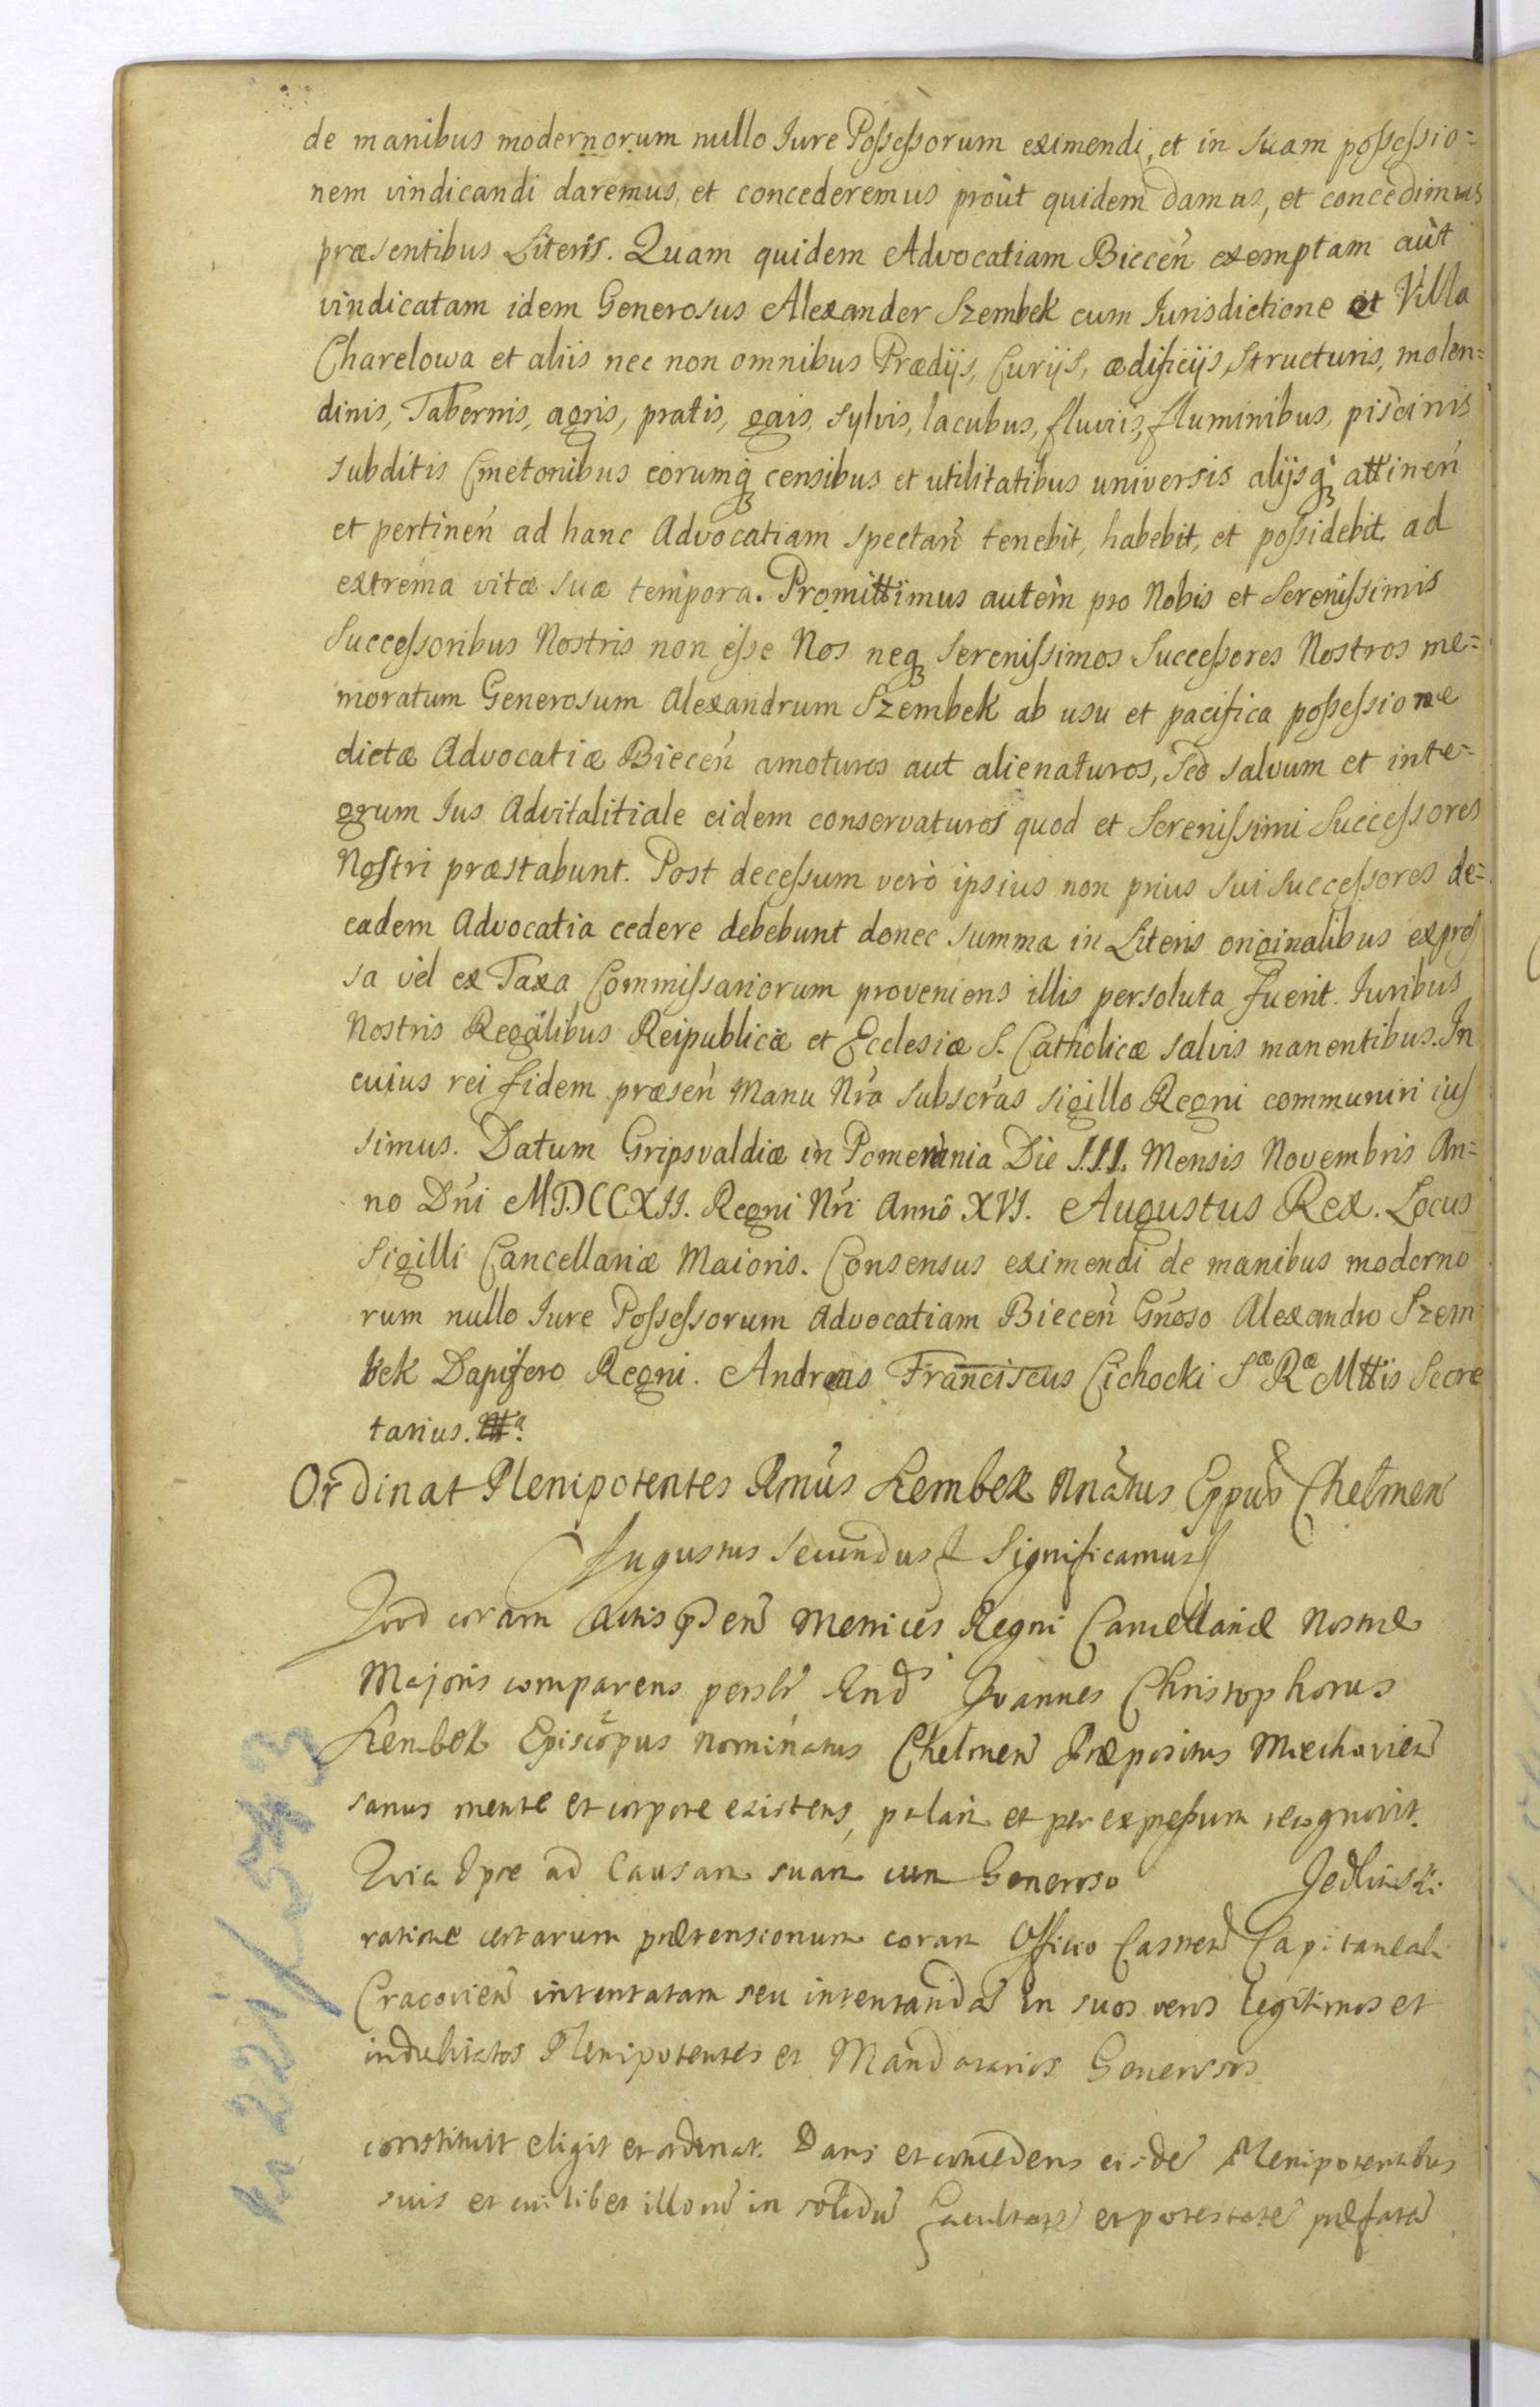 de manibus modernorum nullo Iure Possessorum eximendi, et in suam possessio=
nem vindicandi daremus, et concederemus proùt quidem damus, et concèdimus
præsentibus Literis. Quam quidem Advocatiam Biecen̄ exemptam aùt
vindicatam idem Generosus Alexander Szembek cum Iurisdictione et Villa
Charelowa et aliis nec non omnibus Prædijs, Curijs, ædificijs, structuris, molen=
dinis, Tabernis, agris, pratis, gais, sylvis, lacubus, fluviis, fluminibus, piscinis
subditis Cmetonibus eorumq́ censibus et utilitatibus universis alijsq́ attinen̄
et pertinen̄ ad hanc Advocatiam spectan̄ tenebit, habebit, et possidebit ad
extrema vitæ suæ tempora. Promittimus autem pro Nobis et Serenissimis
Successoribus Nostris non esse Nos neq́ Serenissimos Successores Nostros me=
moratum Generosum Alexandrum Szembek ab usu et pacifica possessione
dictæ Advocatiæ Biecen̄ amoturos aut alienaturos, sed salvum et inte=
grum Ius Advitalitiale eidem conservaturos quod et Serenissimi Successores
Nostri præstabunt. Post decessum verò ipsius non prius sui successores de=
eadem Advocatia cedere debebunt donec summa in Literis originalibus expres
sa vel ex Taxa Commissariorum proveniens illis persoluta fuerit. Iuribus
Nostris Regalibus Reipublicæ et Ecclesiæ S. Catholicæ salvis manentibus. In
cuius rei fidem præsen̄ Manu Nr̄a subscr̄as sigillo Regni communiri ius
simus. Datum Gripsvaldiæ in Pomerania Die III. Mensis Novembris An=
no Dn̄i MDCCXII. Regni Nr̄i Annô XVI. Augustus Rex. Locus
Sigilli Cancellariæ Maioris. Consensus eximendi de manibus moderno
rum nullo Iure Possessorum Advocatiam Biecen̄ Gn̄oso Alexandro Szem=
bek Dapifero Regni. Andreas Franciscus Cichocki Sæ Ræ Mttis Secre
tarius.
Ordinat Plenipotentes Rmūs Szembek Nnātus Eppūs Chelmen̄
Augustus Secundus Significamus
Quod coram Actis p̄den̄ Metrices Regni Cancellariæ Nostræ
Majoris comparens persl̄r Rnd̄ Ioannes Christophorus
Szembek Episcopus Nominatus Chelmen̄ Præpositus Miechovien̄
sanus mente et corpore existens, palam et per expressum recognovit.
Quia Ipse ad Causam suam cum Generoso Jedlinski
ratione certarum prætensionum coram Officio Castren̄ Capitaneali
Cracovien̄ intentatam seu intentandā in suos veros legitimos et
indubitatos Plenipotentes et Mandatarios Generosos
constituit eligit et ordinat. Dans et concedens eisdē Plenipotentibus
suis et cuilibet illorū in solidū Facultatē et potestatē præfatā